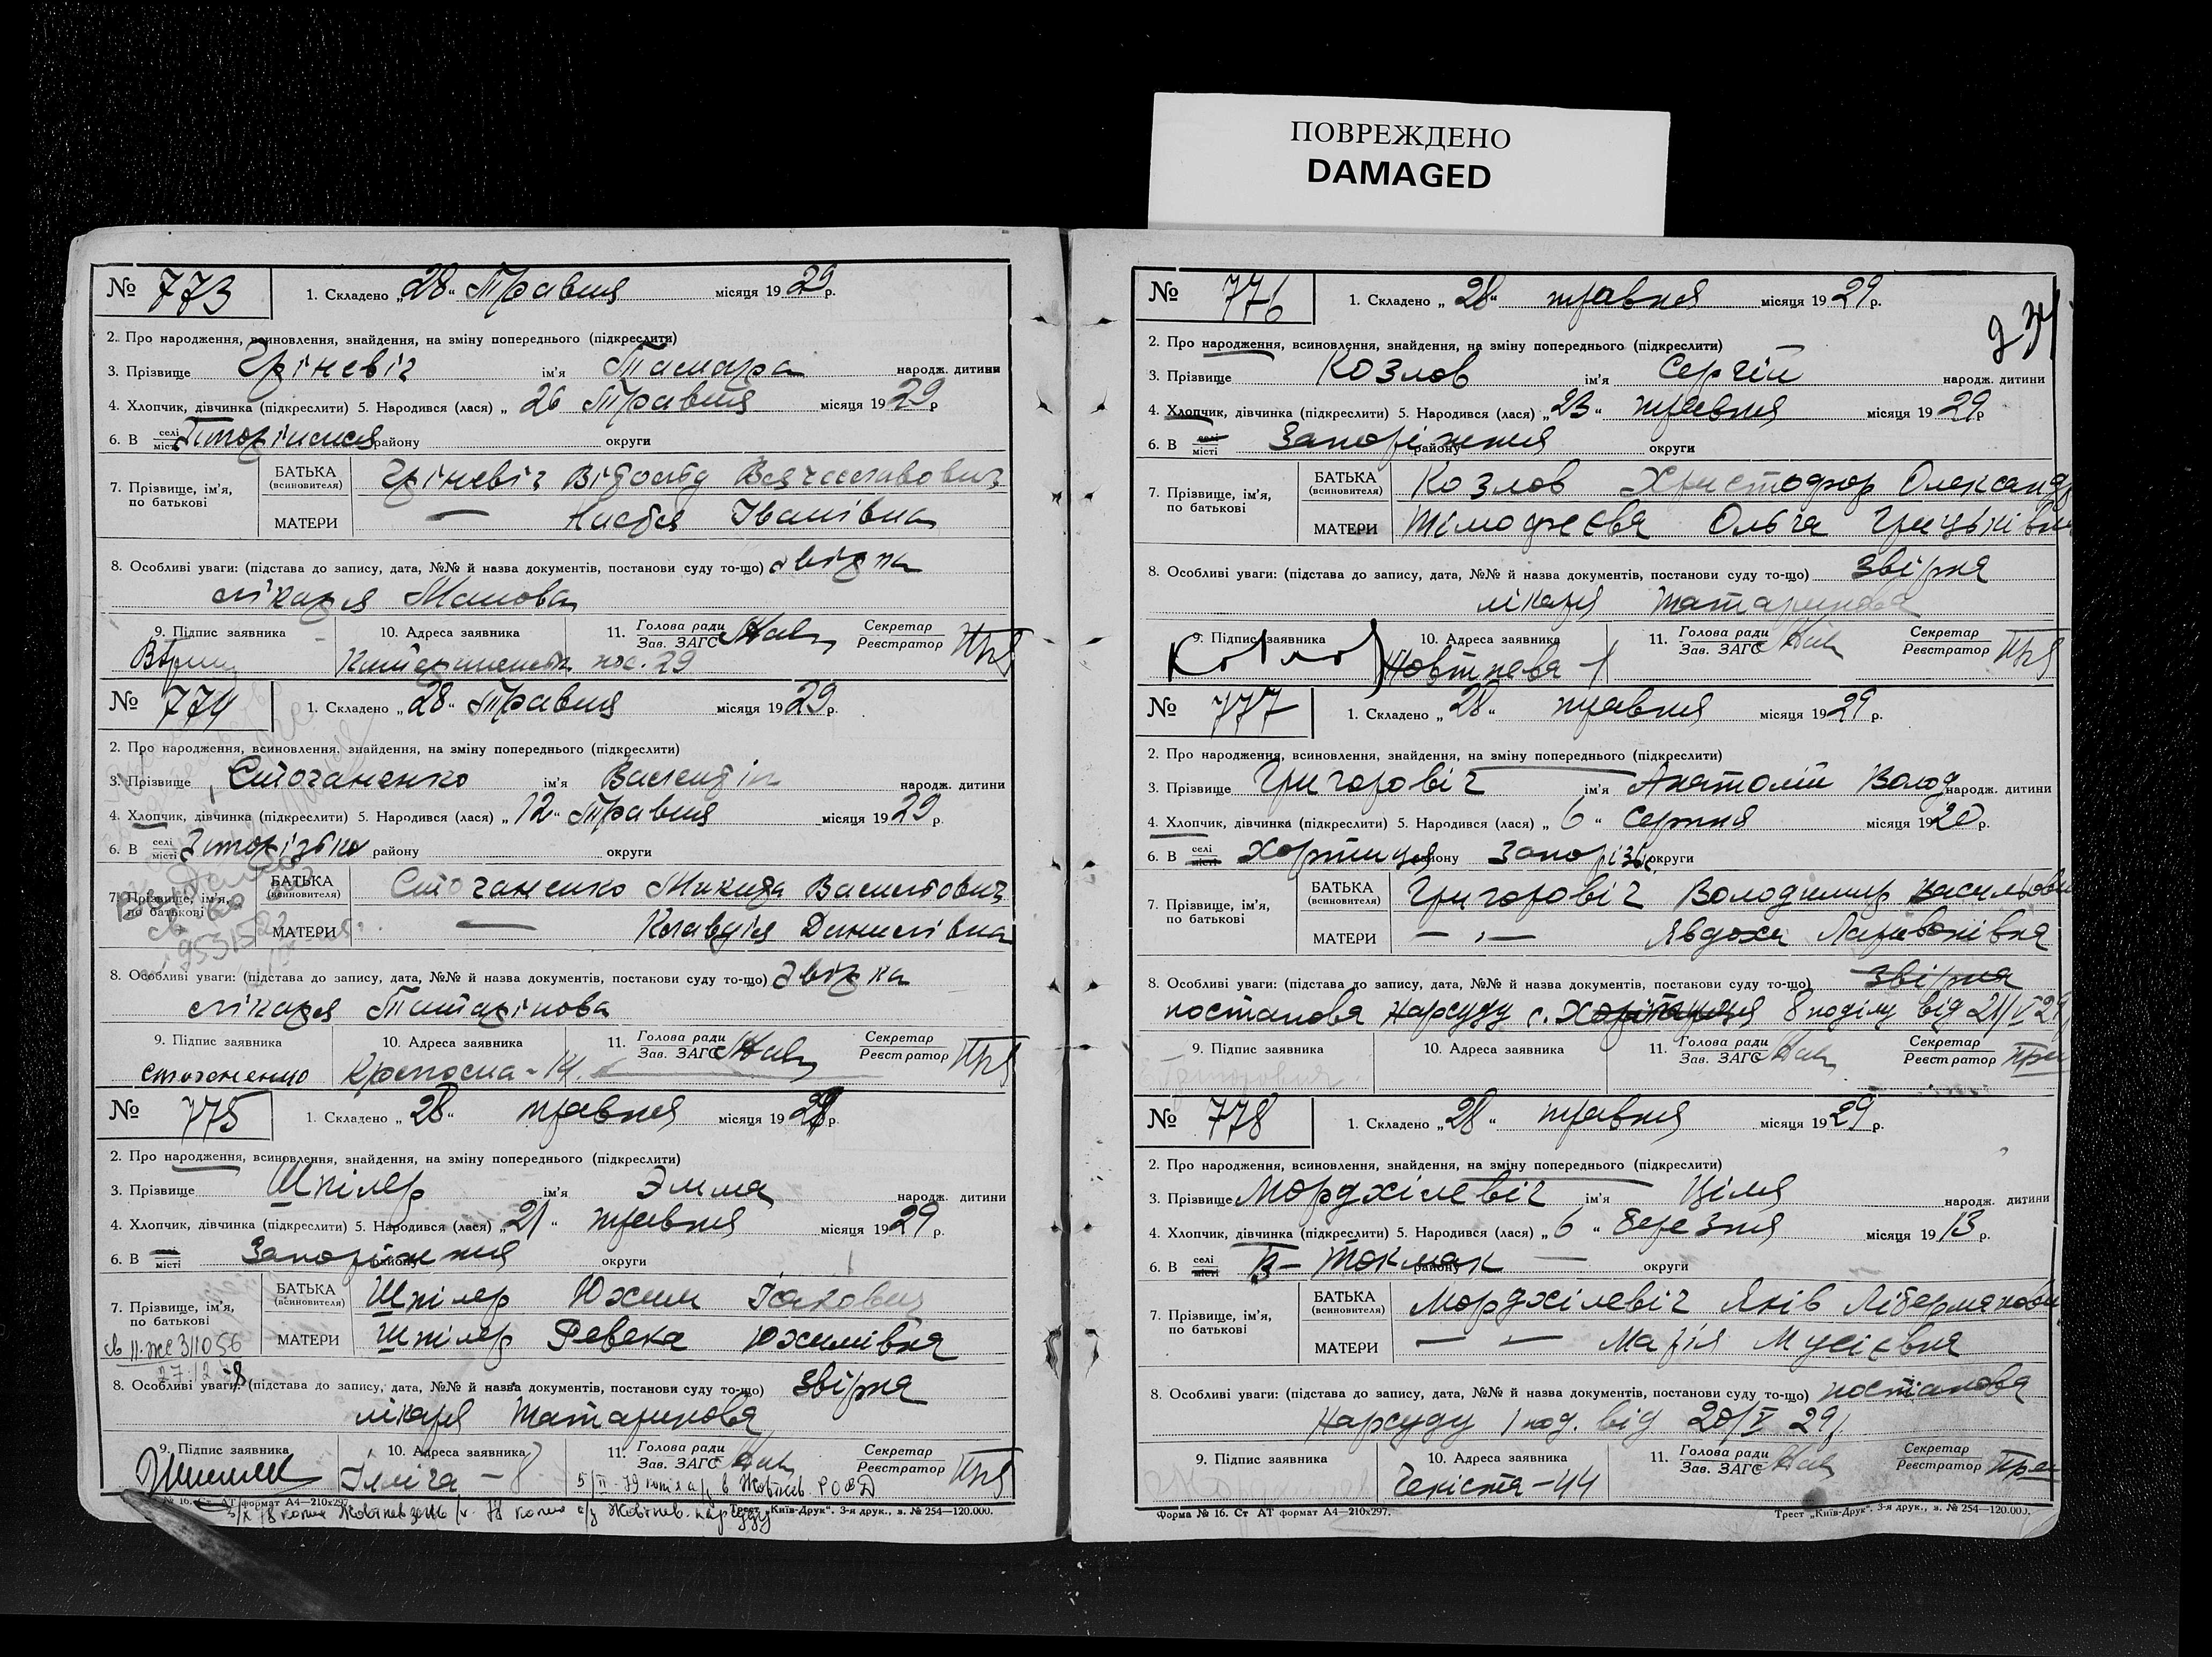 ПОВРЕЖДЕНО
DAMAGED
№ 773 1. Складено „28“ Травня місяця 1929 р.
2. Про народження, всиновлення, знайдення, на зміну попереднього (підкреслити)
3. Прізвище Гріневіч ім'я Тамара народж. дитини
4. Хлопчик, дівчинка (підкреслити) 5. Народився (лася) „ 26 Травня місяця 1929 р
6. В селі місті району округи
7. Прізвище, ім'я, по батькові
БАТЬКА (всиновителя) Гріневіч Вітольд Вячеславович
МАТЕРИ — Настя Іванівна
8. Особливі уваги: (підстава до запису, дата, №№ й назва документів, постанови суду то-що) звідка
лікаря
9. Підпис заявника 10. Адреса заявника 11. Голова ради Зав. ЗАГС Секретар Реєстратор
пос. 29
№ 774 1. Складено „28“ Травня місяця 1929 р.
2. Про народження, всиновлення, знайдення, на зміну попереднього (підкреслити)
3. Прізвище Стоганенко ім'я Валентін народж. дитини
4. Хлопчик, дівчинка (підкреслити) 5. Народився (лася) „12“ Травня місяця 1929 р.
6. В селі місті району округи
7. Прізвище, ім'я, по батькові
БАТЬКА (всиновителя) Стоганенко Микита Васильович
МАТЕРИ — Клавдія Данилівна
8. Особливі уваги: (підстава до запису, дата, №№ й назва документів, постанови суду то-що) звідка
лікаря Татарінова
9. Підпис заявника 10. Адреса заявника 11. Голова ради Зав. ЗАГС Секретар Реєстратор
Стоганенко Крепосна - 14
№ 775 1. Складено „28“ травня місяця 1929 р.
2. Про народження, всиновлення, знайдення, на зміну попереднього (підкреслити)
3. Прізвище Шпілер ім'я Эмма народж. дитини
4. Хлопчик, дівчинка (підкреслити) 5. Народився (лася) „21“ травня місяця 1929 р.
6. В селі місті Запоріжжя району округи
7. Прізвище, ім'я, по батькові
БАТЬКА (всиновителя) Шпілер Юхим Ісакович
МАТЕРИ Шпілер Ревека Юхимівна
8. Особливі уваги: (підстава до запису, дата, №№ й назва документів, постанови суду то-що) звірка
лікаря Татаринова
9. Підпис заявника 10. Адреса заявника 11. Голова ради Зав. ЗАГС Секретар Реєстратор
Ілліча - 8
№ 16. Ст. АТ формат А4—210x297. Трест „Київ-Друк“. 3-я друк., з. № 254—120.000.
№ 776 1. Складено „28“ травня місяця 1929 р.
2. Про народження, всиновлення, знайдення, на зміну попереднього (підкреслити)
3. Прізвище Козлов ім'я Сергій народж. дитини
4. Хлопчик, дівчинка (підкреслити) 5. Народився (лася) „23“ травня місяця 1929 р
6. В селі місті Запоріжжя району округи
7. Прізвище, ім'я, по батькові
БАТЬКА (всиновителя) Козлов Христофор Олександ
МАТЕРИ Тімофеєва Ольга Грицьківна
8. Особливі уваги: (підстава до запису, дата, №№ й назва документів, постанови суду то-що) звірка
лікаря Татаринова
9. Підпис заявника 10. Адреса заявника 11. Голова ради Зав. ЗАГС Секретар Реєстратор
Козлов Жовтнева - 1
№ 777 1. Складено „28“ травня місяця 1929 р.
2. Про народження, всиновлення, знайдення, на зміну попереднього (підкреслити)
3. Прізвище Григоровіч ім'я Анатолій Волод народж. дитини
4. Хлопчик, дівчинка (підкреслити) 5. Народився (лася) „ 6 “ Серпня місяця 1920 р.
6. В селі місті Хортиця району Запорізьк. округи
7. Прізвище, ім'я, по батькові
БАТЬКА (всиновителя) Григоровіч Володимир Васильови
МАТЕРИ — „ — Явдоха Ларивонівна
8. Особливі уваги: (підстава до запису, дата, №№ й назва документів, постанови суду то-що) звірка
постанова Нарсуду с. Хортиця 8 поділу від 21/V 29
9. Підпис заявника 10. Адреса заявника 11. Голова ради Зав. ЗАГС Секретар Реєстратор
№ 778 1. Складено „28“ травня місяця 1929 р.
2. Про народження, всиновлення, знайдення, на зміну попереднього (підкреслити)
3. Прізвище Мордхілевіч ім'я Ціля народж. дитини
4. Хлопчик, дівчинка (підкреслити) 5. Народився (лася) „6 “ березня місяця 1913 р.
6. В селі місті В – Токмак району — округи
7. Прізвище, ім'я, по батькові
БАТЬКА (всиновителя) Мордхілевіч Яків Лібермянови
МАТЕРИ — — Марія Мусієвна
8. Особливі уваги: (підстава до запису, дата, №№ й назва документів, постанови суду то-що) постанова
Нарсуду 1 под. від 20/V 29р
9. Підпис заявника 10. Адреса заявника 11. Голова ради Зав. ЗАГС Секретар Реєстратор
Чекіста - 44
Форма № 16. Ст АТ формат А4—210x297. Трест „Київ-Друк“. 3-я друк., з. № 254—120.000.